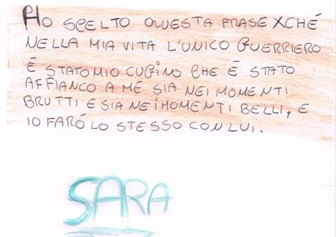 HO SCELTO QUESTA FRASE XCHÉ
NELLA MIA VITA L'UNICO GUERRIERO
É STATO MIO CUGINO CHE É STATO
AFFIANCO A ME SIA NEI MOMENTI
BRUTTI E SIA NEI MOMENTI BELLI, E
IO FARÓ LO STESSO CON LUI.
SARA